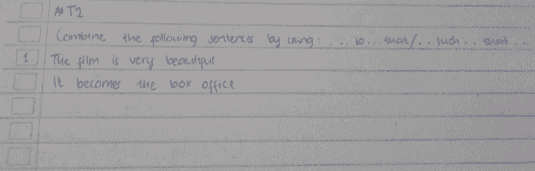 # T2
Combine the following sentences by using: ... so ... that / .. such .. that ...
1 The film is very beautiful
It becomes the box office